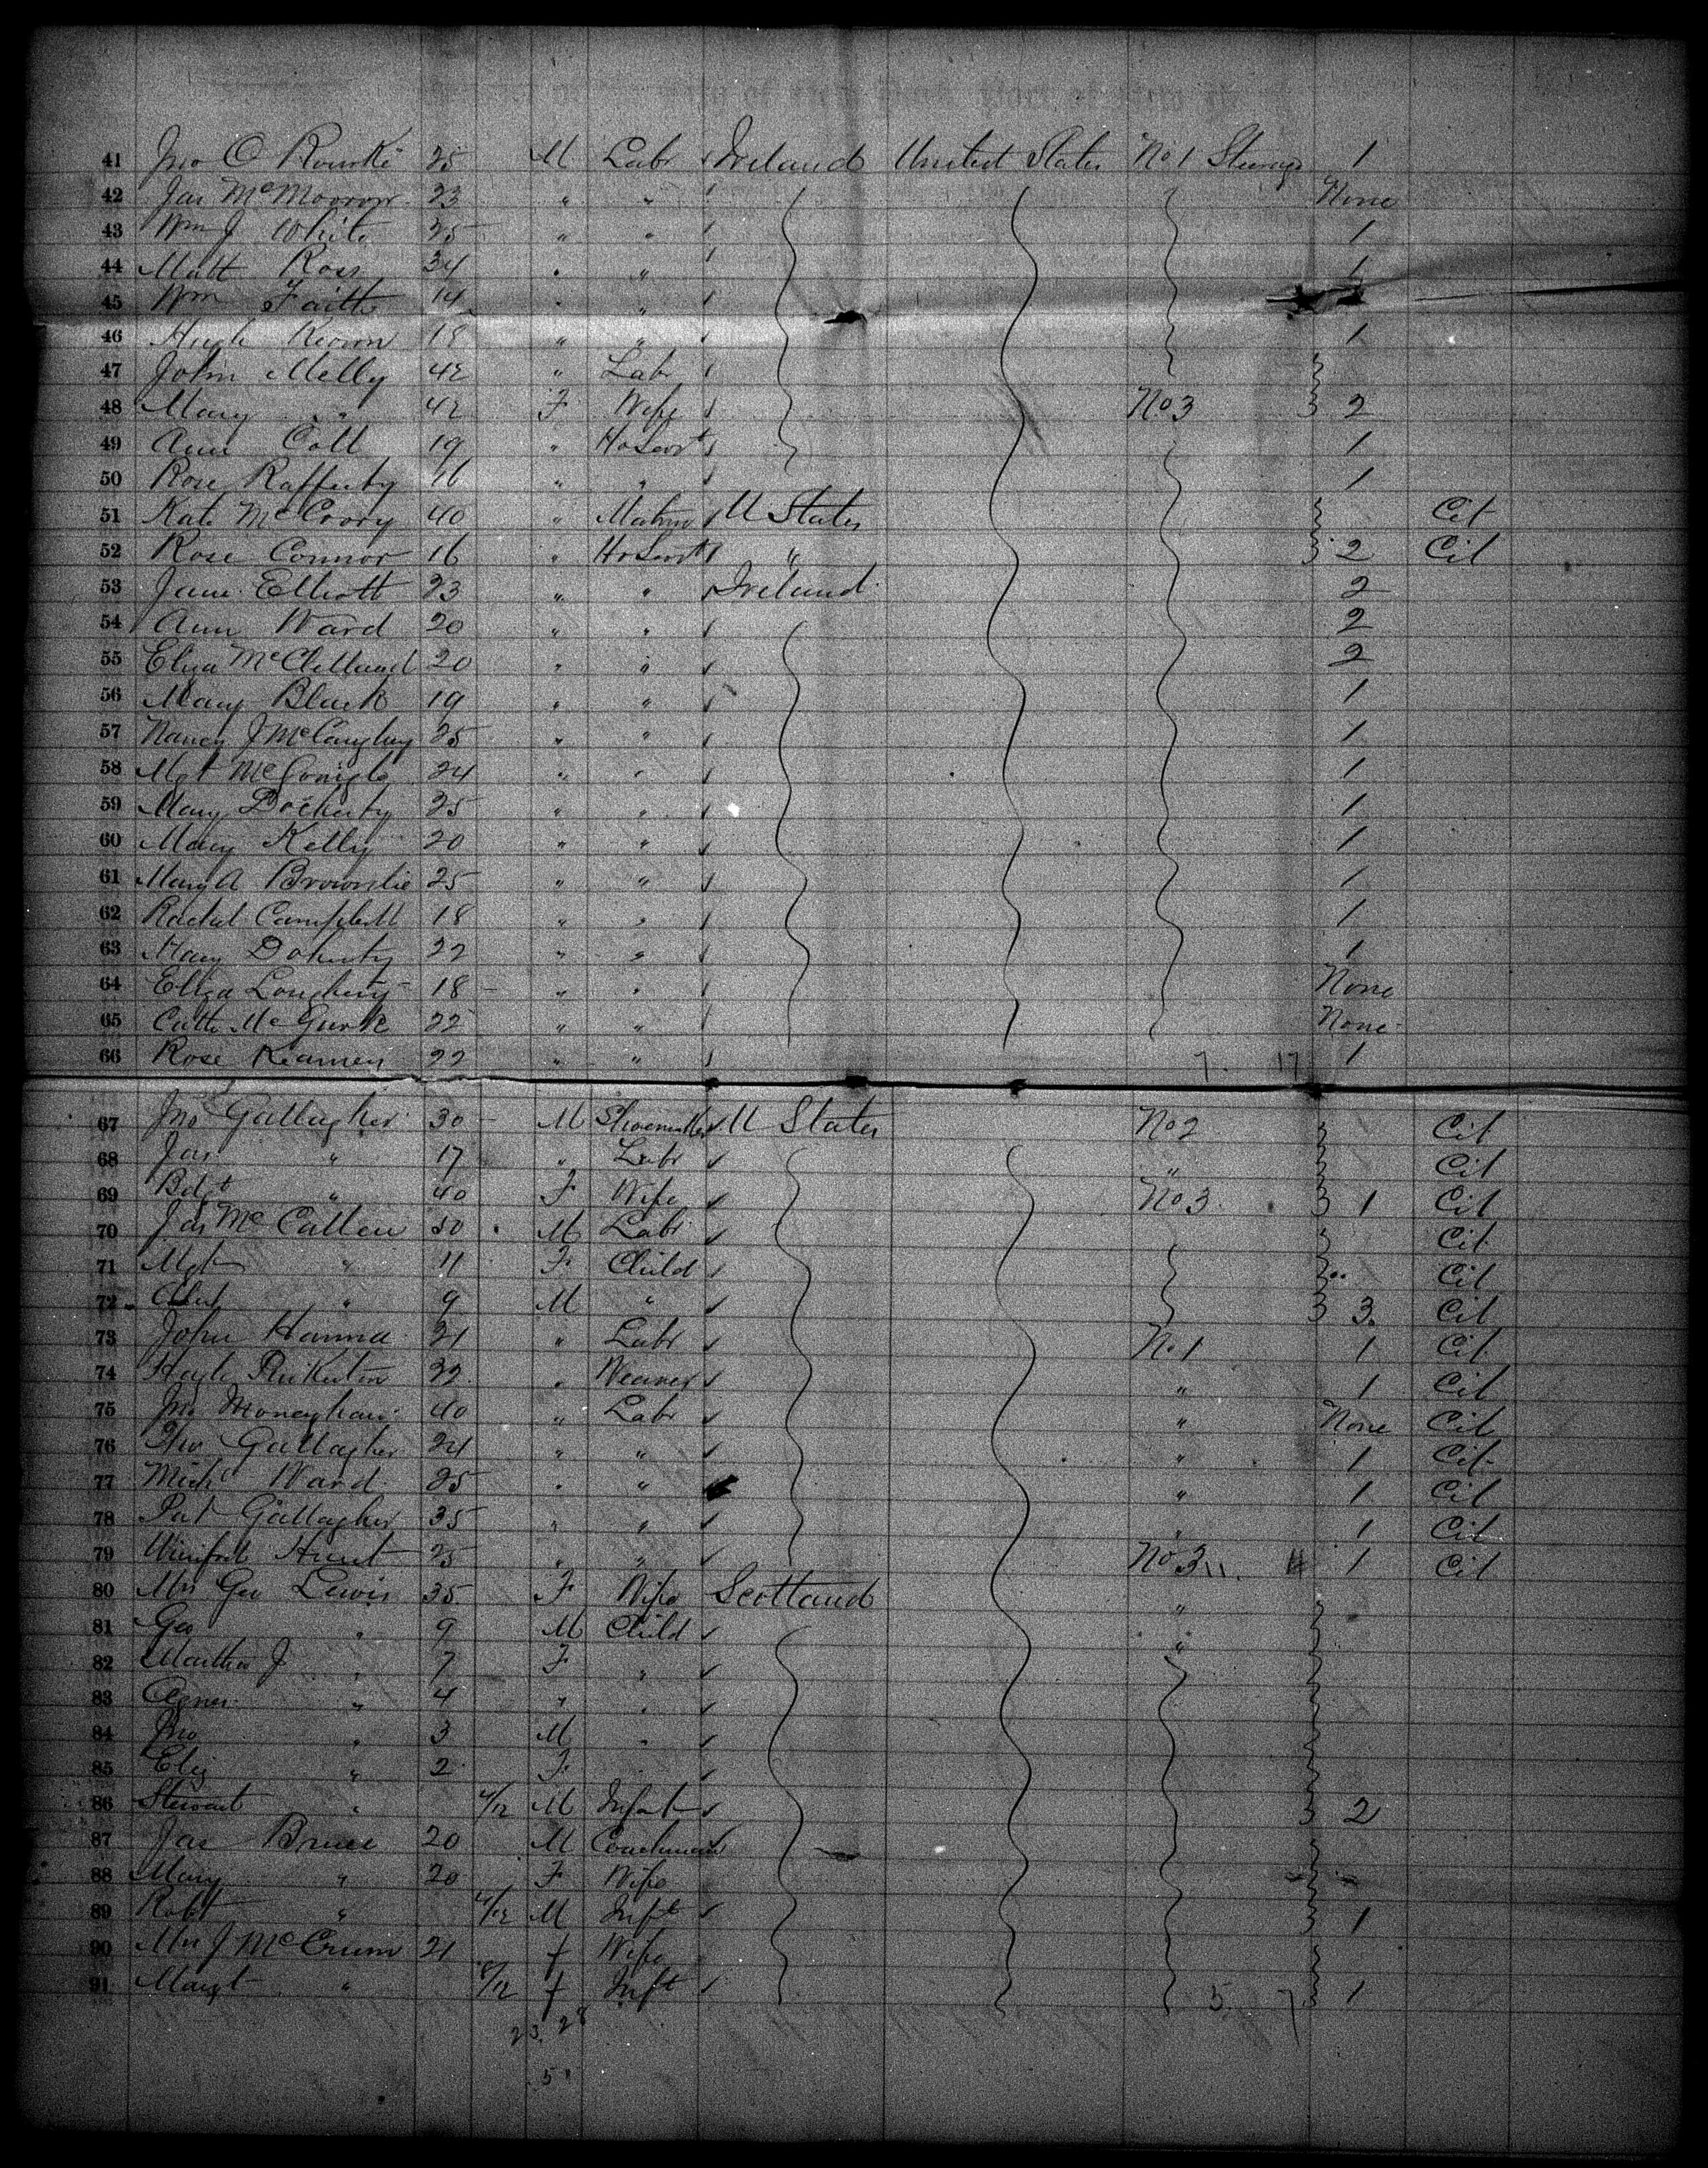 41 Jno O Rourke 25 M Labr Ireland United States No 1 Steerage 1
42 Jas McMorrow 23 " " None
43 Wm J White 25 " " 1
44 Matt Ross 34 " " 1
45 Wm Faith 14 " "
46 Hugh Keown 18 " " 1
47 John Melly 42 " Labr
48 Mary " 42 F Wife No 3 2
49 Ann Coll 19 " Ho Servt 1
50 Rose Rafferty 16 " " 1
51 Kate McCrory 40 " Matron U States Cit
52 Rose Connor 16 " Ho Servt " 2 Cit
53 Jane Elliott 23 " " Ireland 2
54 Ann Ward 20 " " 2
55 Eliza McClelland 20 " " 2
56 Mary Black 19 " " 1
57 Nancy J McCaughey 25 " " 1
58 Mgt McGonigle 24 " " 1
59 Mary Docherty 25 " " 1
60 Mary Kelly 20 " " 1
61 Mary A Brownlie 25 " " 1
62 Rachel Campbell 18 " " 1
63 Mary Doherty 22 " " 1
64 Eliza Loughery 18 " " None
65 Cath McGurk 22 " " None
66 Rose Keamen 22 " " 7. 17 1
67 Jno Gallagher 30 M Shoemaker U States No 2 Cit
68 Jas " 17 " Labr " Cit
69 Bdgt " 40 F Wife No 3 1 Cit
70 Jas McCallen 50 M Labr Cit
71 Mgt " 11 F Child Cit
72 " 9 M " 3 Cit
73 John Hanna 21 " Labr No 1 1 Cit
74 Hugh Pinkerton 22 " Weaver " 1 Cit
75 Jno Moneghan 40 " Labr " None Cit
76 Gallagher 24 " " " 1 Cit
77 Michl Ward 25 " " " 1 Cit
78 Pat Gallagher 35 " " " 1 Cit
79 Winifred Hunt 25 " " No 3 11. 1 Cit
80 Mrs Geo Lewis 35 F Wife Scotland "
81 Geo " 9 M Child "
82 Martha J " 7 F " "
83 Agnes " 4 " "
84 Jno " 3 M "
85 Eliz " 2 F
86 Stewart " /12 M Infant 2
87 Jas Bruce 20 M Coachman
88 Mary " 20 F Wife
89 Robt " /12 M Inft 1
90 Mrs J McCrum 21 f Wife
91 Margt " /12 f Inft 5 7 1
23. 28
51